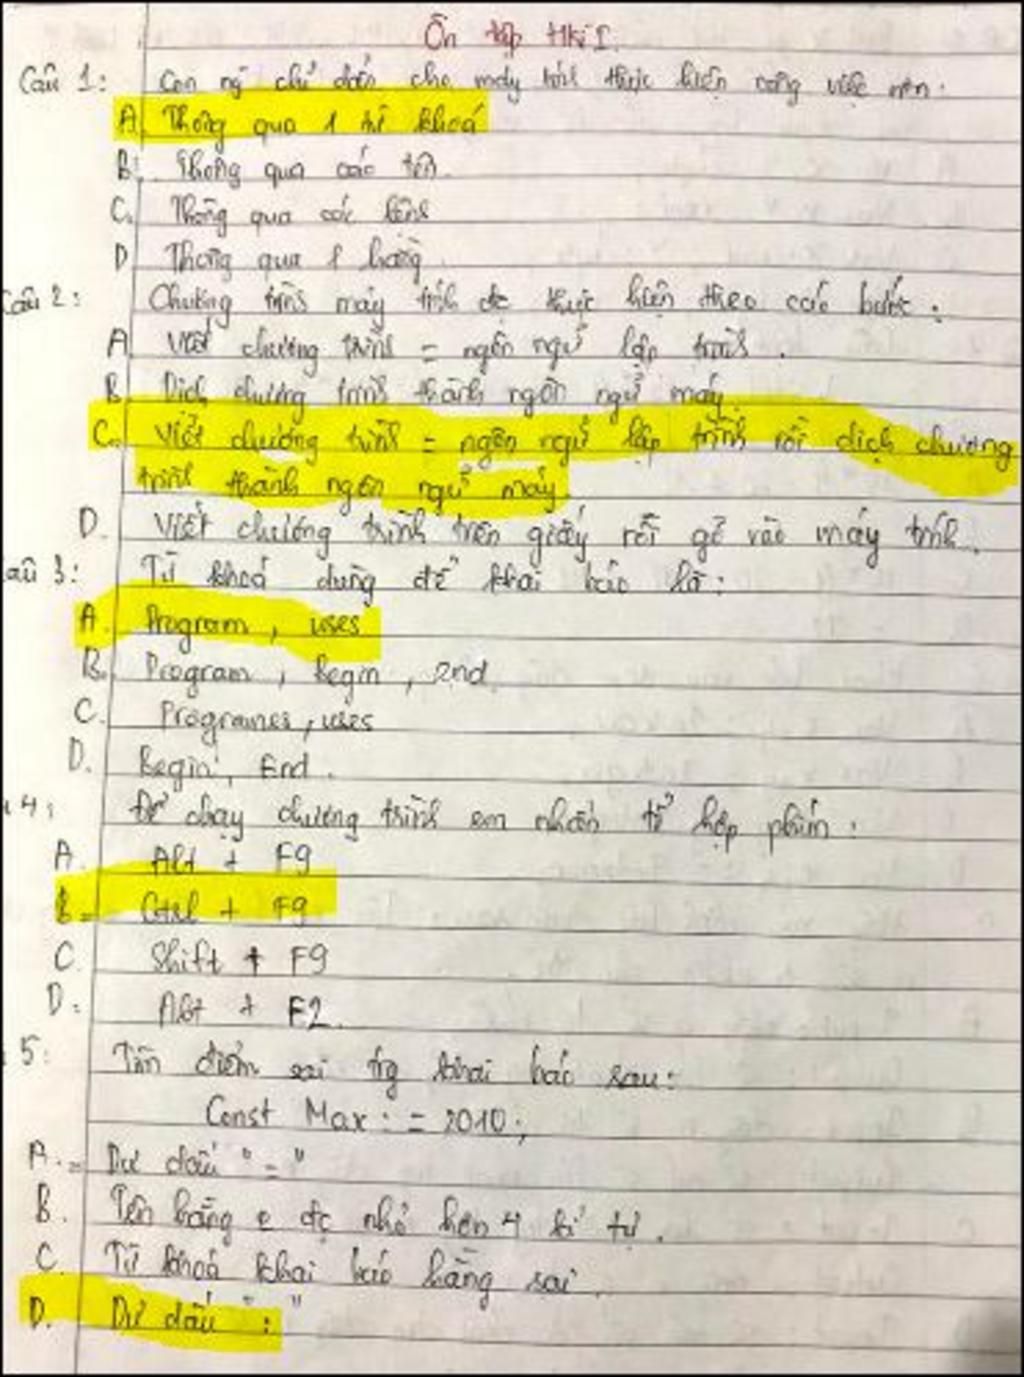 Ôn tập HKI
Câu 1: Con ng chỉ dẫn cho máy tính thực hiện công việc nên:
A. Thông qua 1 từ khoá
B. Thông qua các tên.
C. Thông qua các lệnh
D Thông qua 1 hằng.
Câu 2: Chương trình máy tính đc thực hiện theo các bước:
A Viết chương trình = ngôn ngữ lập trình.
B. Dịch chương trình thành ngôn ngữ máy.
C. Viết chương trình = ngôn ngữ lập trình rồi dịch chương
trình thành ngôn ngữ máy.
D. Viết chương trình trên giấy rồi gõ vào máy tính.
âu 3: Từ khoá dùng để khai báo là:
A. Program, uses
B. Program, Begin, End
C. Programes, uses
D. Begin, End.
4: Để chạy chương trình em nhấn tổ hợp phím:
A. Alt + F9
B. Ctrl + F9
C. Shift + F9
D. Alt + F2.
5: Tìm điểm sai trg khai báo sau:
Const Max : = 2010;
A. Dư dấu "="
B. Tên hằng đc nhỏ hơn 4 kí tự.
C. Từ khoá khai báo hằng sai.
D. Dư dấu ":"